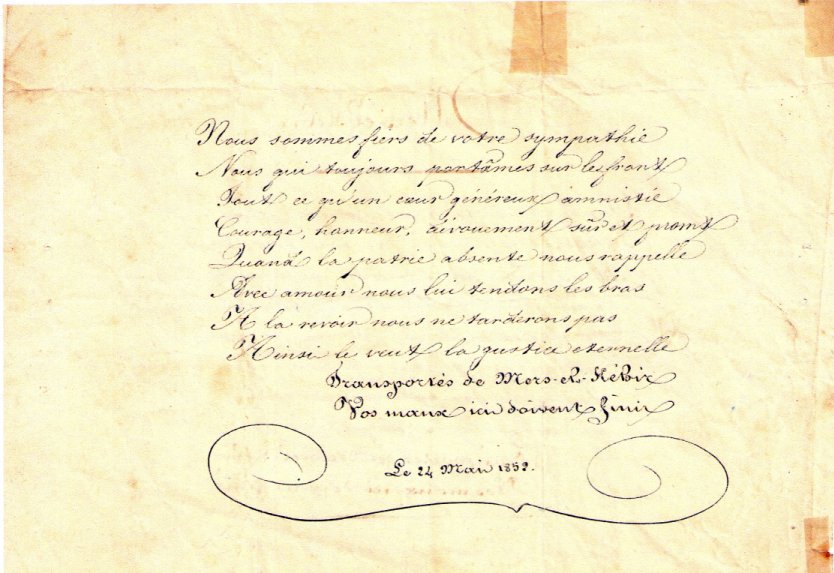 Nous sommes fiers de votre sympathie
Nous qui toujours portâmes sur le front
Tout ce qu'un cœur généreux amnistie
Courage, honneur, dévouement sûr et promt
Quand la patrie absente nous rappelle
Avec amour nous lui tendons les bras
A la revoir nous ne tarderons pas
Ainsi le veut la justice eternelle
Transportés de Mers-el-Kébir
Vos maux ici doivent finir
Le 24 Mai 1852.